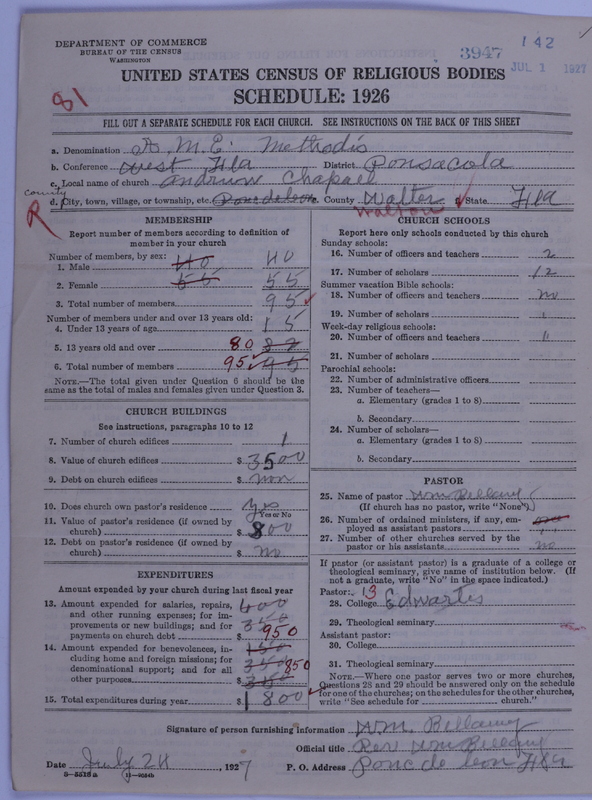 DEPARTMENT OF COMMERCE
BUREAU OF THE CENSUS
WASHINGTON
3947
142
JUL 1 1927
UNITED STATES CENSUS OF RELIGIOUS BODIES
SCHEDULE: 1926
81
FILL OUT A SEPARATE SCHEDULE FOR EACH CHURCH. SEE INSTRUCTIONS ON THE BACK OF THIS SHEET
a. Denomination A. M. E. Methodis
b. Conference West Fla District Ponsacola
c. Local name of church Andrium Chapael
County
d. City, town, village, or township, etc. Ponc de leon e. County Walter State Fla
R Walton
MEMBERSHIP
Report number of members according to definition of
member in your church
Number of members, by sex:
1. Male 40 40
2. Female 55 55
3. Total number of members 95
Number of members under and over 13 years old:
4. Under 13 years of age 15
5. 13 years old and over 80 82
6. Total number of members 95 95
NOTE.—The total given under Question 6 should be the
same as the total of males and females given under Question 3.
CHURCH BUILDINGS
See instructions, paragraphs 10 to 12
7. Number of church edifices 1
8. Value of church edifices $ 3500
9. Debt on church edifices $ non
10. Does church own pastor's residence yes
Yes or No
11. Value of pastor's residence (if owned by
church) $ 800
12. Debt on pastor's residence (if owned by
church) $ no
EXPENDITURES
Amount expended by your church during last fiscal year
13. Amount expended for salaries, repairs, 600
and other running expenses; for im-
provements or new buildings; and for 350
payments on church debt $ 950
14. Amount expended for benevolences, in- 150
cluding home and foreign missions; for
denominational support; and for all 350 850
other purposes $ 350
15. Total expenditures during year $ 1800
CHURCH SCHOOLS
Report here only schools conducted by this church
Sunday schools:
16. Number of officers and teachers 2
17. Number of scholars 12
Summer vacation Bible schools:
18. Number of officers and teachers no
19. Number of scholars
Week-day religious schools:
20. Number of officers and teachers "
21. Number of scholars
Parochial schools:
22. Number of administrative officers
23. Number of teachers—
a. Elementary (grades 1 to 8)
b. Secondary
24. Number of scholars—
a. Elementary (grades 1 to 8)
b. Secondary
PASTOR
25. Name of pastor Wm Bellamy
(If church has no pastor, write "None")
26. Number of ordained ministers, if any, em-
ployed as assistant pastors
27. Number of other churches served by the
pastor or his assistants no
If pastor (or assistant pastor) is a graduate of a college or
theological seminary, give name of institution below. (If
not a graduate, write "No" in the space indicated.)
Pastor: 13
28. College Edwartis
29. Theological seminary
Assistant pastor:
30. College
31. Theological seminary
NOTE.—Where one pastor serves two or more churches,
Questions 28 and 29 should be answered only on the schedule
for one of the churches; on the schedules for the other churches,
write "See schedule for church."
Signature of person furnishing information Wm. Bellamy
Official title Rev Wm Bellamy
Date July 24, 1927 P. O. Address Ponc de leon Fla
8—5518a 11—9264b